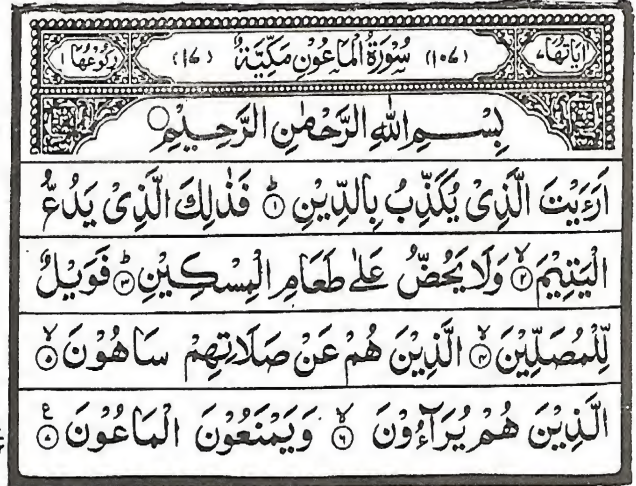 اٰيَاتُهَا ٧ (١٠٧) سُوْرَةُ الْمَاعُوْنِ مَكِّيَّةٌ (١٧) رُكُوْعُهَا ١
بِسْمِ اللهِ الرَّحْمٰنِ الرَّحِيْمِ ○
اَرَءَيْتَ الَّذِىْ يُكَذِّبُ بِالدِّيْنِ ؕ ١ فَذٰلِكَ الَّذِىْ يَدُعُّ
الْيَتِيْمَ ۙ ٢ وَلَا يَحُضُّ عَلٰى طَعَامِ الْمِسْكِيْنِ ؕ ٣ فَوَيْلٌ
لِّلْمُصَلِّيْنَ ۙ ٤ الَّذِيْنَ هُمْ عَنْ صَلَاتِهِمْ سَاهُوْنَ ۙ ٥
الَّذِيْنَ هُمْ يُرَآءُوْنَ ۙ ٦ وَيَمْنَعُوْنَ الْمَاعُوْنَ ع ٧